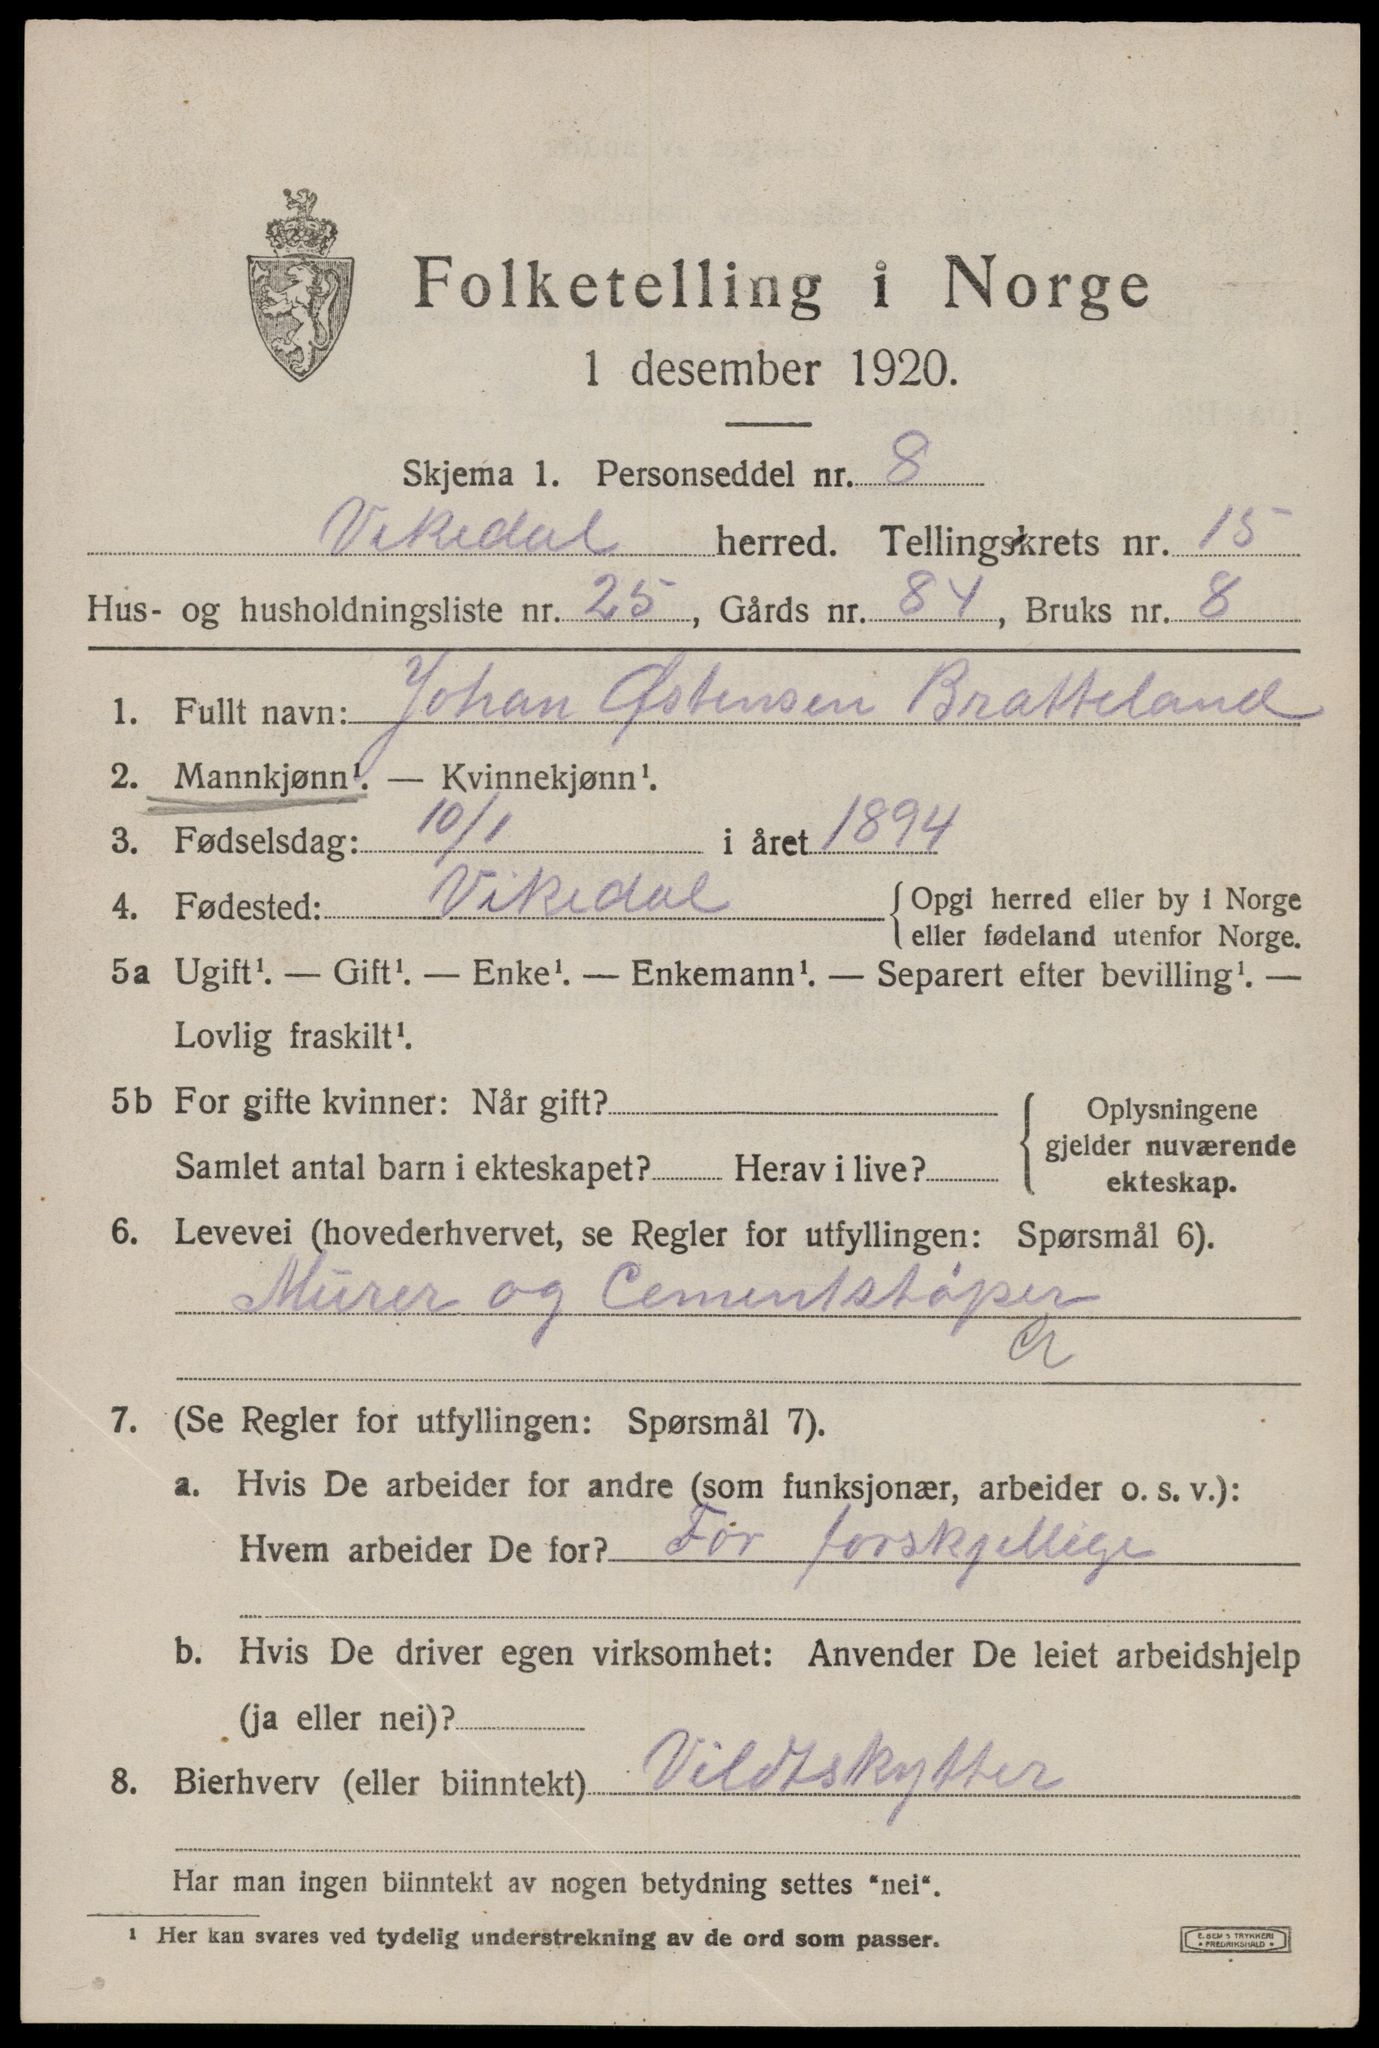 Folketelling i Norge
1 desember 1920.
Skjema 1. Personseddel nr. 8
Vikedal herred. Tellingskrets nr. 15
Hus- og husholdningsliste nr. 25, Gårds nr. 84, Bruks nr. 8
1. Fullt navn: Johan Østensen Bratteland
2. Mannkjønn¹. — Kvinnekjønn¹.
3. Fødselsdag: 10/1 i året 1894
4. Fødested: Vikedal { Opgi herred eller by i Norge
eller fødeland utenfor Norge.
5a Ugift¹. — Gift¹. — Enke¹. — Enkemann¹. — Separert efter bevilling¹. —
Lovlig fraskilt¹.
5b For gifte kvinner: Når gift?
Samlet antal barn i ekteskapet? Herav i live?
{ Oplysningene
gjelder nuværende
ekteskap.
6. Levevei (hovederhvervet, se Regler for utfyllingen: Spørsmål 6).
Murer og Cementstöper
a
7. (Se Regler for utfyllingen: Spørsmål 7).
a. Hvis De arbeider for andre (som funksjonær, arbeider o. s. v.):
Hvem arbeider De for? For forskjellige
b. Hvis De driver egen virksomhet: Anvender De leiet arbeidshjelp
(ja eller nei)?
8. Bierhverv (eller biinntekt) Vildtskytter
Har man ingen biinntekt av nogen betydning settes "nei".
¹ Her kan svares ved tydelig understrekning av de ord som passer.
E. SEM'S TRYKKERI
• FREDRIKSHALD •